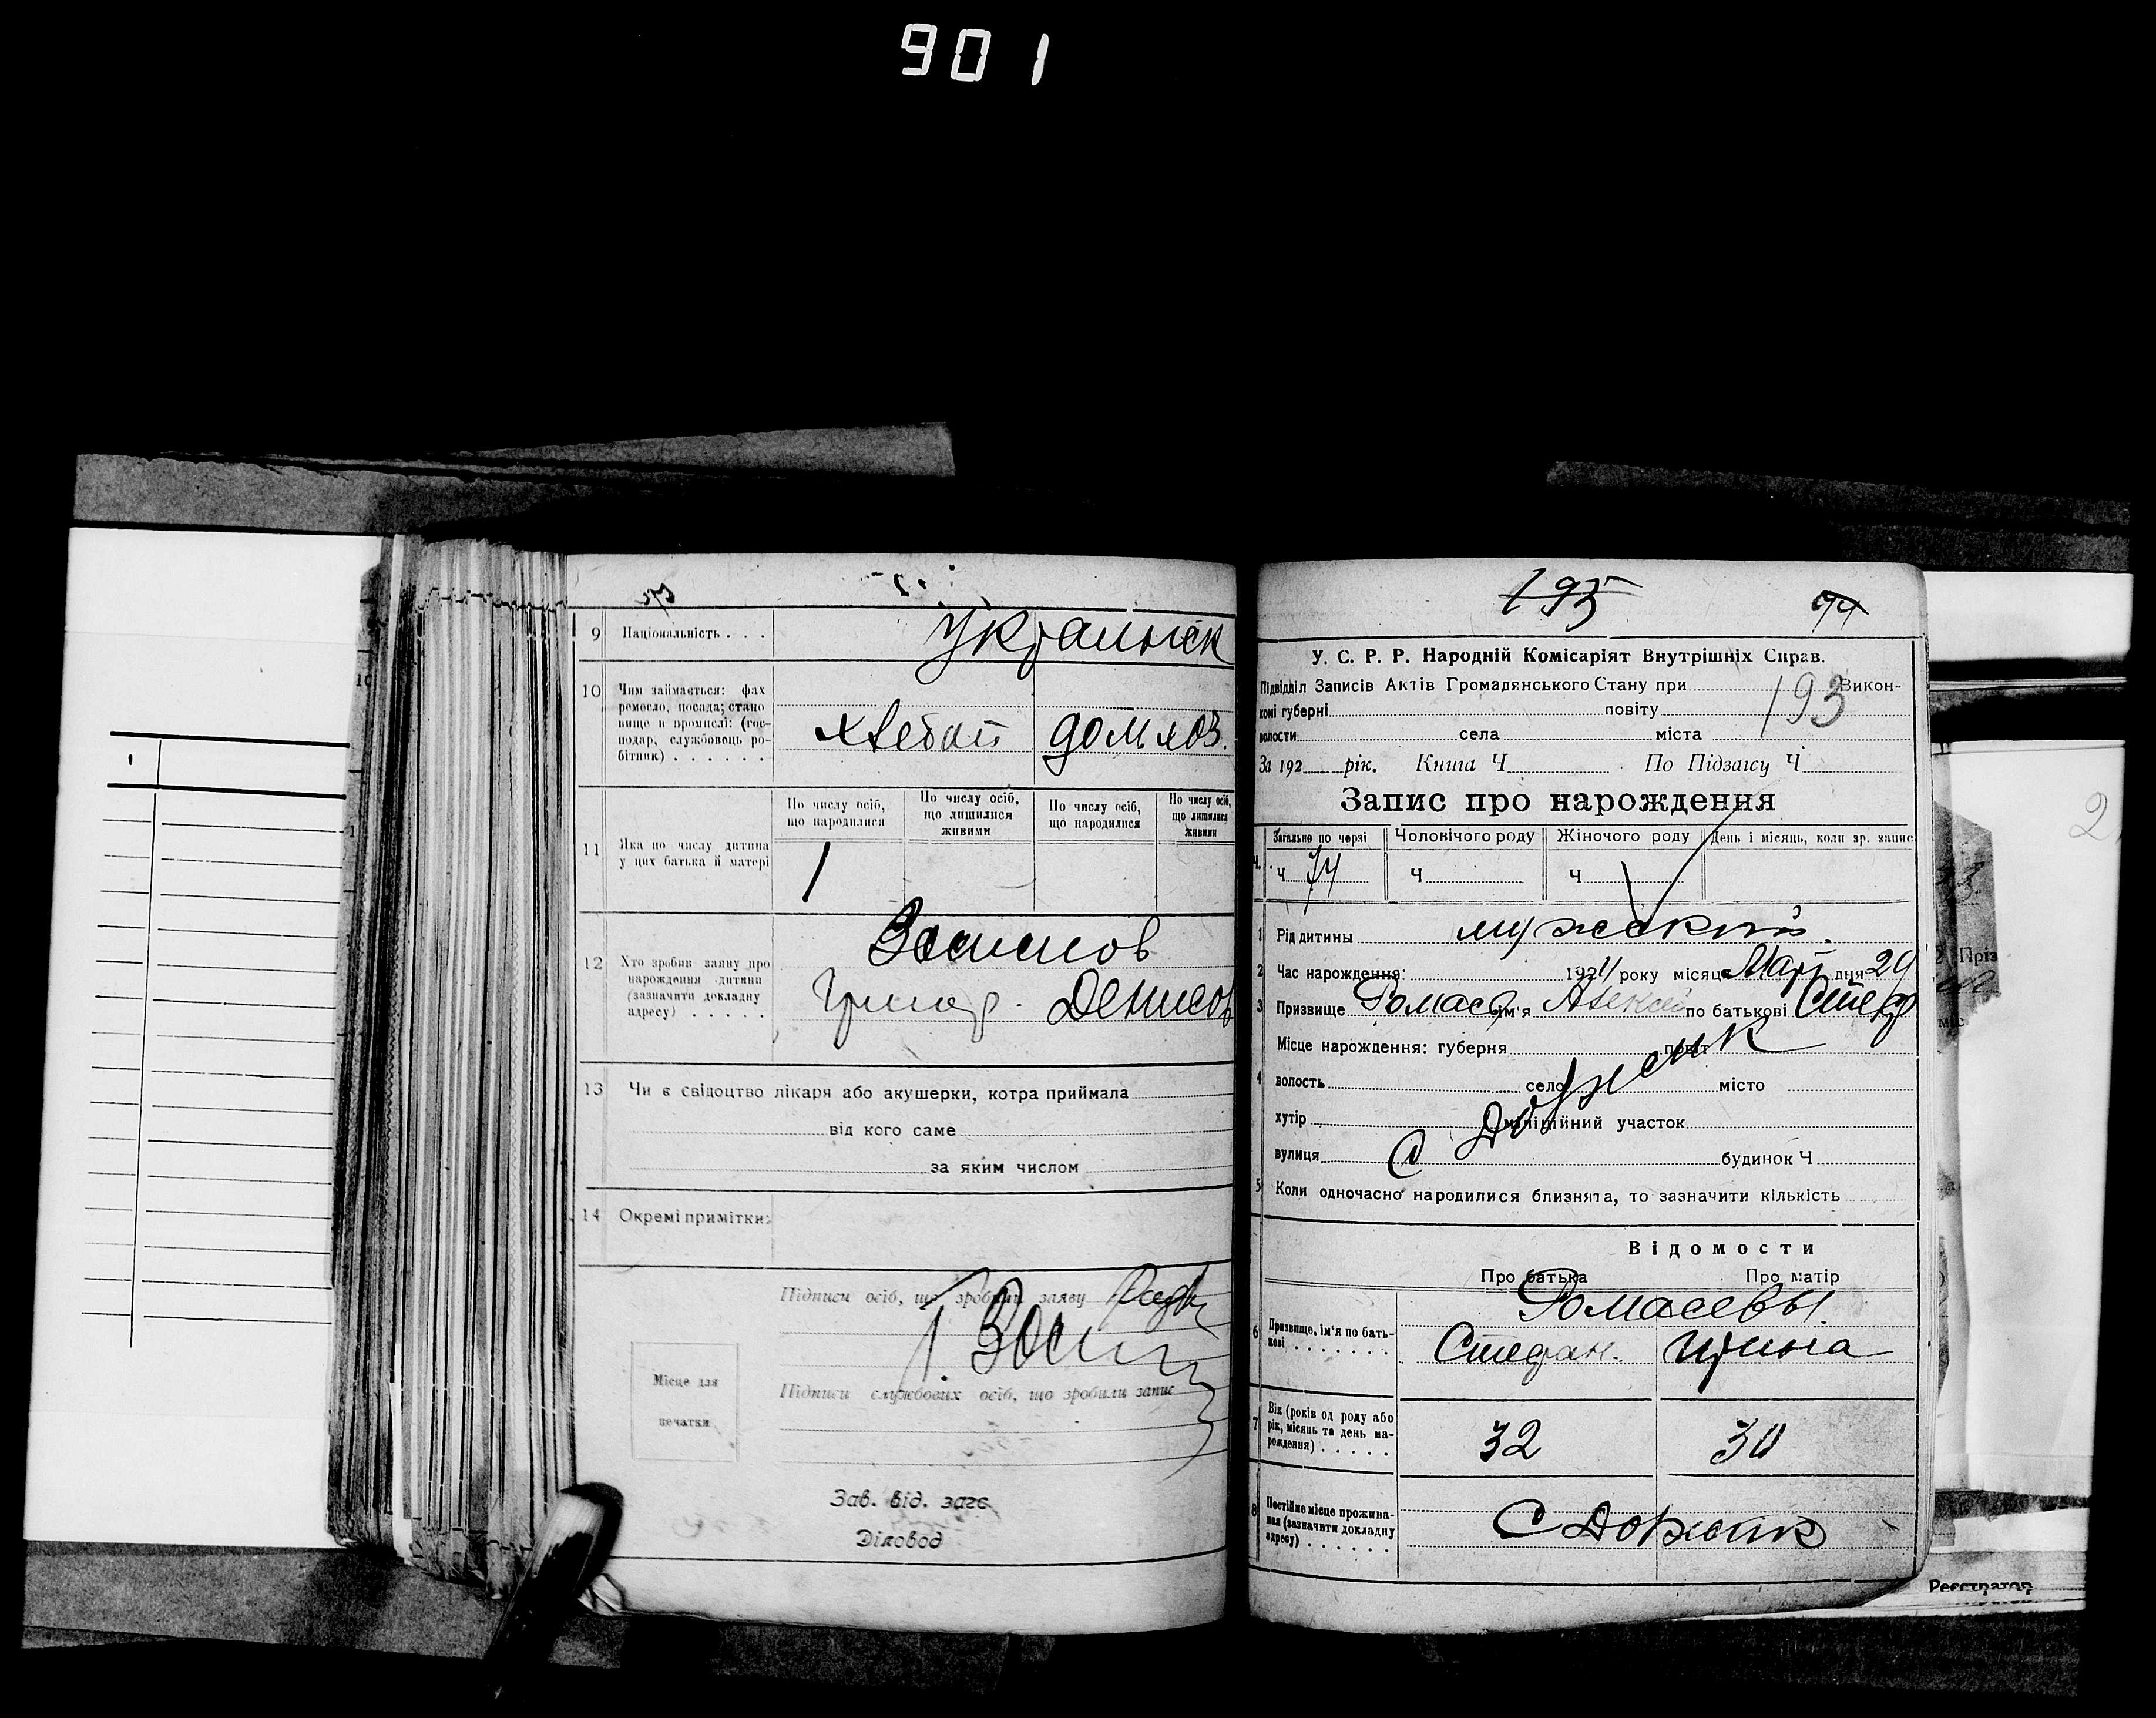 901
9 Національність . . .
Украинск
10 Чим займається: фах
ремесло, посада; стано
вище в промислі: (гос-
подар, службовець ро-
бітник) . . . . . .
хлебоп домхоз.
11 Яка по числу дитина
у цих батька й матері
По числу осіб,
що народилися
По числу осіб,
що лишилися
живими
По числу осіб,
що народилися
По числу осіб,
що лишилися
живими
1
12 Хто зробив заяву про
нарождення дитини
(зазначити докладну
адресу) . . . . .
Григор. Денисов
13 Чи є свідоцтво лікаря або акушерки, котра приймала
від кого саме
за яким числом
14 Окремі примітки:
Підписи осіб, що зробили заяву
Підписи службових осіб, що зробили запис
Місце для
печатки
Зав. від. загс
Діловод
195
74
У. С. Р. Р. Народній Комісаріят Внутрішніх Справ.
Підвідділ Записів Актів Громадянського Стану при Викон-
193
комі губерні повіту
волости села міста
За 192 рік. Книга Ч. По Підзагсу Ч
Запис про нарождення
Загальне по черзі Чоловічого роду Жіночого роду День і місяць, коли зр. запис
Ч. Ч 74 Ч Ч
1 Рід дитины мужский.
2 Час нарождення: 192 року місяця дня 29
3 Призвище ім'я Алексей по батькові Стеф
Місце нарождення: губерня повіт
4 волость село місто
хутір міліційний участок
вулиця будинок Ч
С Доржик
5 Коли одночасно народилися близнята, то зазначити кількість
Відомости
Про батька Про матір
Ромасевы
6 Призвище, ім'я по бать-
кові . . . . . . .
Стефан. Ирина
7 Вік (років од роду або
рік, місяць та день на-
рождення) . . . . .
32 30
8 Постійне місце прожива-
ння (зазначити докладну
адресу) . . . . . .
С Доржик
Реєстратор